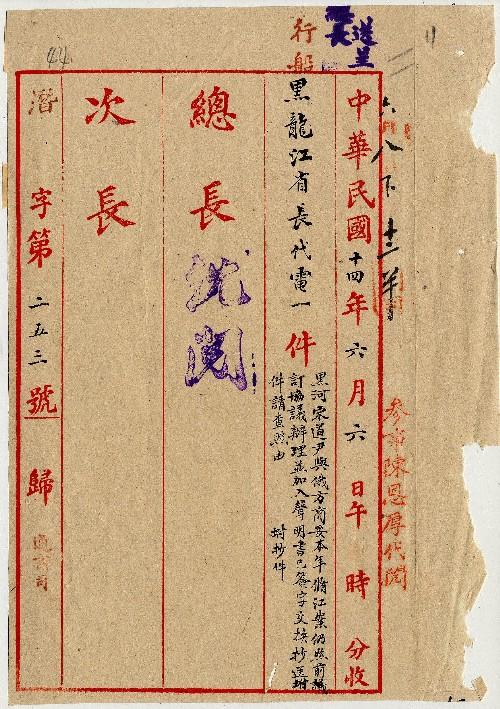 送呈
行船
六八下十二半
中華民國十四年六月六日午 時 分收
參事陳恩厚代閱
黑龍江省長代電一件
黑河宋道尹與俄方商妥本年脩江案仍照前議
訂協議辦理並加入聲明書已簽字交換抄送附
件請查照由 附抄件
總長
沈閱
次長
潛字第二五三號歸
通商司
44